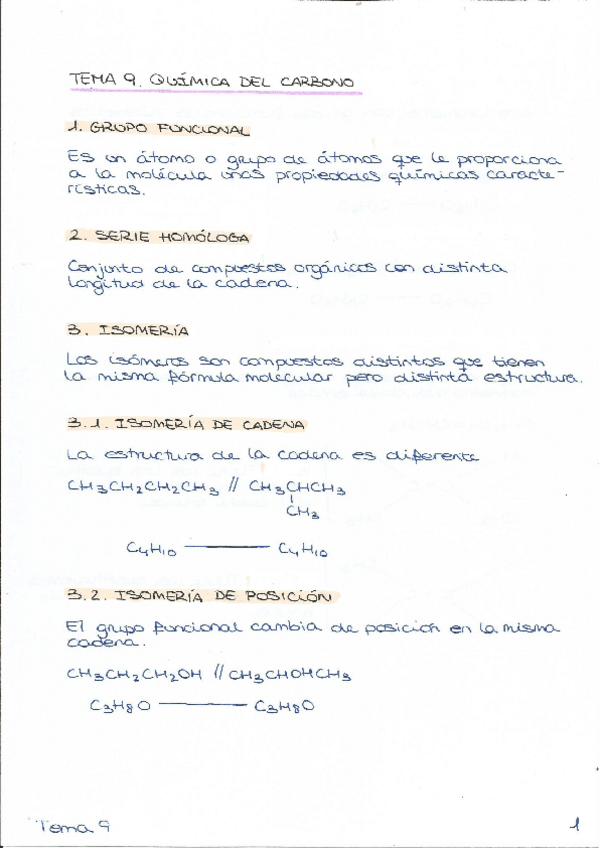 TEMA 9. QUÍMICA DEL CARBONO
1. GRUPO FUNCIONAL
Es un átomo o grupo de átomos que le proporciona
a la molécula unas propiedades químicas caracte-
rísticas.
2. SERIE HOMÓLOGA
Conjunto de compuestos orgánicos con distinta
longitud de la cadena.
3. ISOMERÍA
Los isómeros son compuestos distintos que tienen
la misma fórmula molecular pero distinta estructura.
3.1. ISOMERÍA DE CADENA
La estructura de la cadena es diferente
CH₃CH₂CH₂CH₃ // CH₃CHCH₃
CH₃
C₄H₁₀ —— C₄H₁₀
3.2. ISOMERÍA DE POSICIÓN
El grupo funcional cambia de posición en la misma
cadena.
CH₃CH₂CH₂OH // CH₃CHOHCH₃
C₃H₈O —— C₃H₈O
Tema 9 1